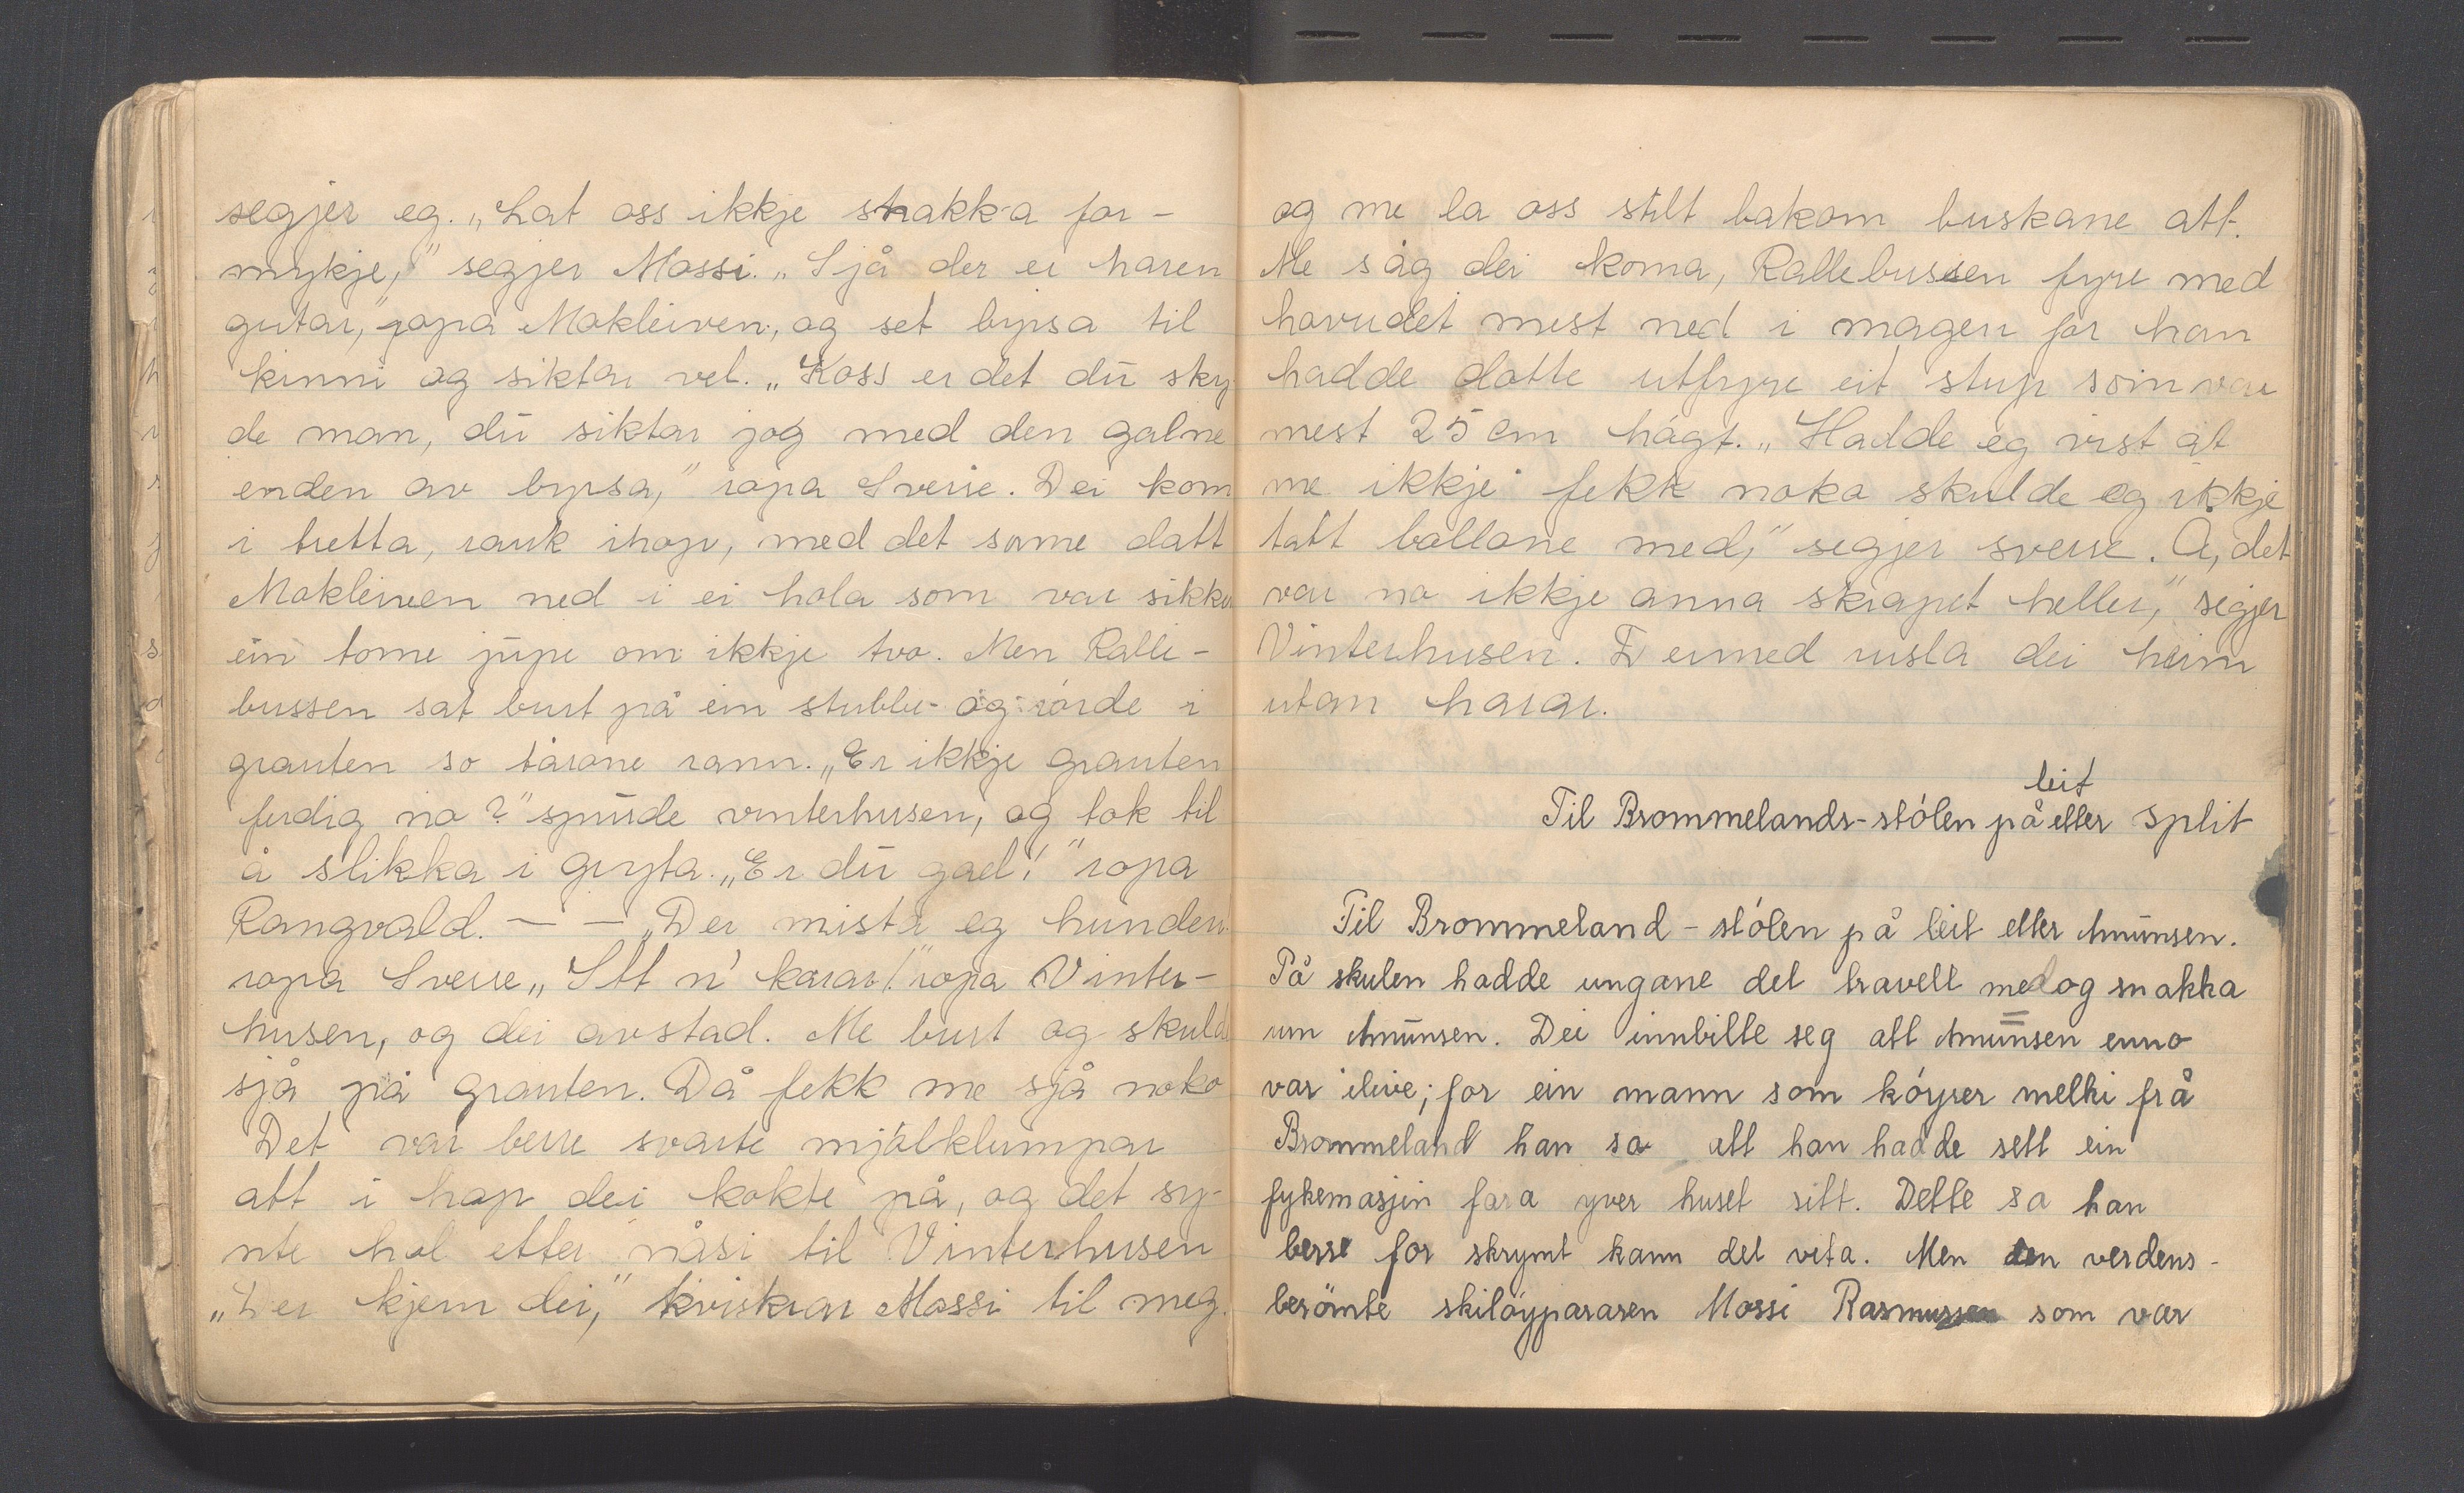 segjer eg. „Lat oss ikkje snakka for-
mykje," segjer Mossi. „Sjå der er haren
gutar," ropa Mokleiven, og set byrsa til
kinni og siktar vel. „Koss er det dū sky
de man, dū siktar jog med den galne
enden av byrsa," ropa Sverre. Dei kom
i tretta, rauk ihop, med det same datt
Mokleiven ned i ei hola som var sikku
ein tome jūpe om ikkje tvo. Men Ralle-
bussen sat burt på ein stubbe og rörde i
grauten so tårane rann. „Er ikkje grauten
ferdig no?" spūrde vinterhusen, og tok til
å slikka i gryta. „Er dū gael!" ropa
Rangvald. — — „Der mista eg hunden
ropa Sverre „Itt n' karar!" ropa Vinter-
husen, og dei avstad. Me burt og skulde
sjå på grauten. Då fekk me sjå noko
Det var berre svarte mjölklumpar
att i hop dei kokte på, og det sy-
nte hol etter nåsi til Vinterhusen
„Der kjem dei," kviskrar Mossi til meg.
og me la oss stilt bakom buskane att.
Me såg dei koma, Rallebussen fyre med
hovudet mest ned i magen for han
hadde dotte utfyre eit stup som var
mest 25 cm högt. „Hadde eg vist at
me ikkje fekk noko skulde eg ikkje
tatt ballane med," segjer sverre. Å, det
var no ikkje anna skrapet heller," segjer
Vinterhusen. Dermed rusla dei heim
utan harar.
Til Brommelands-stólen på leit etter Split
Til Brommeland-stólen på leit etter Amūnsen.
På skulen hadde ungane det travelt med og snakka
um Amūnsen. Dei innbilte seg att Amūnsen enno
var ilive; for ein mann som kóyrer melki frå
Brommeland han sa att han hadde sett ein
fykemasjin fara yver huset sitt. Dette sa han
berre for skrymt kann det vita. Men den verdens-
berömte skilóypararen Mossi Rasmussen som var